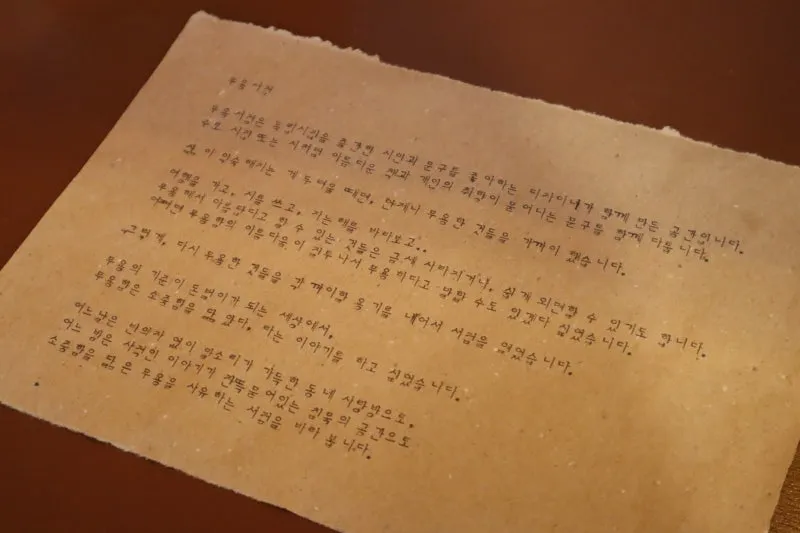 무용서점
무용서점은 독립시집을 출간한 시인과 문구를 좋아하는 디자이너가 함께 만든 공간입니다.
주로 시집 또는 시처럼 아름다운 책과 개인의 취향이 묻어나는 문구를 함께 다룹니다.
삶이 익숙해지는 게 두려울 때면, 언제나 무용한 것들을 가까이 했습니다.
여행을 가고, 시를 쓰고, 지는 해를 바라보고..
무용해서 아름답다고 할 수 있는 것들은 금세 사라지거나, 쉽게 외면할 수 있기도 합니다.
어쩌면 무용함의 아름다움이 칩거나서 무용하다고 말할 수도 있겠다 싶었습니다.
그렇게, 다시 무용한 것들을 가까이할 용기를 내어서 서점을 열었습니다.
무용의 기준이 돈벌이가 되는 세상에서,
무용함은 소중함을 닮았다, 라는 이야기를 하고 싶었습니다.
어느 날은 반의자 없이 말소리가 가득한 동네 사랑방으로,
어느 밤은 사적인 이야기가 잔뜩 묻어있는 침묵의 공간으로
소중함을 닮은 무용을 사유하는 서점을 바라 봅니다.